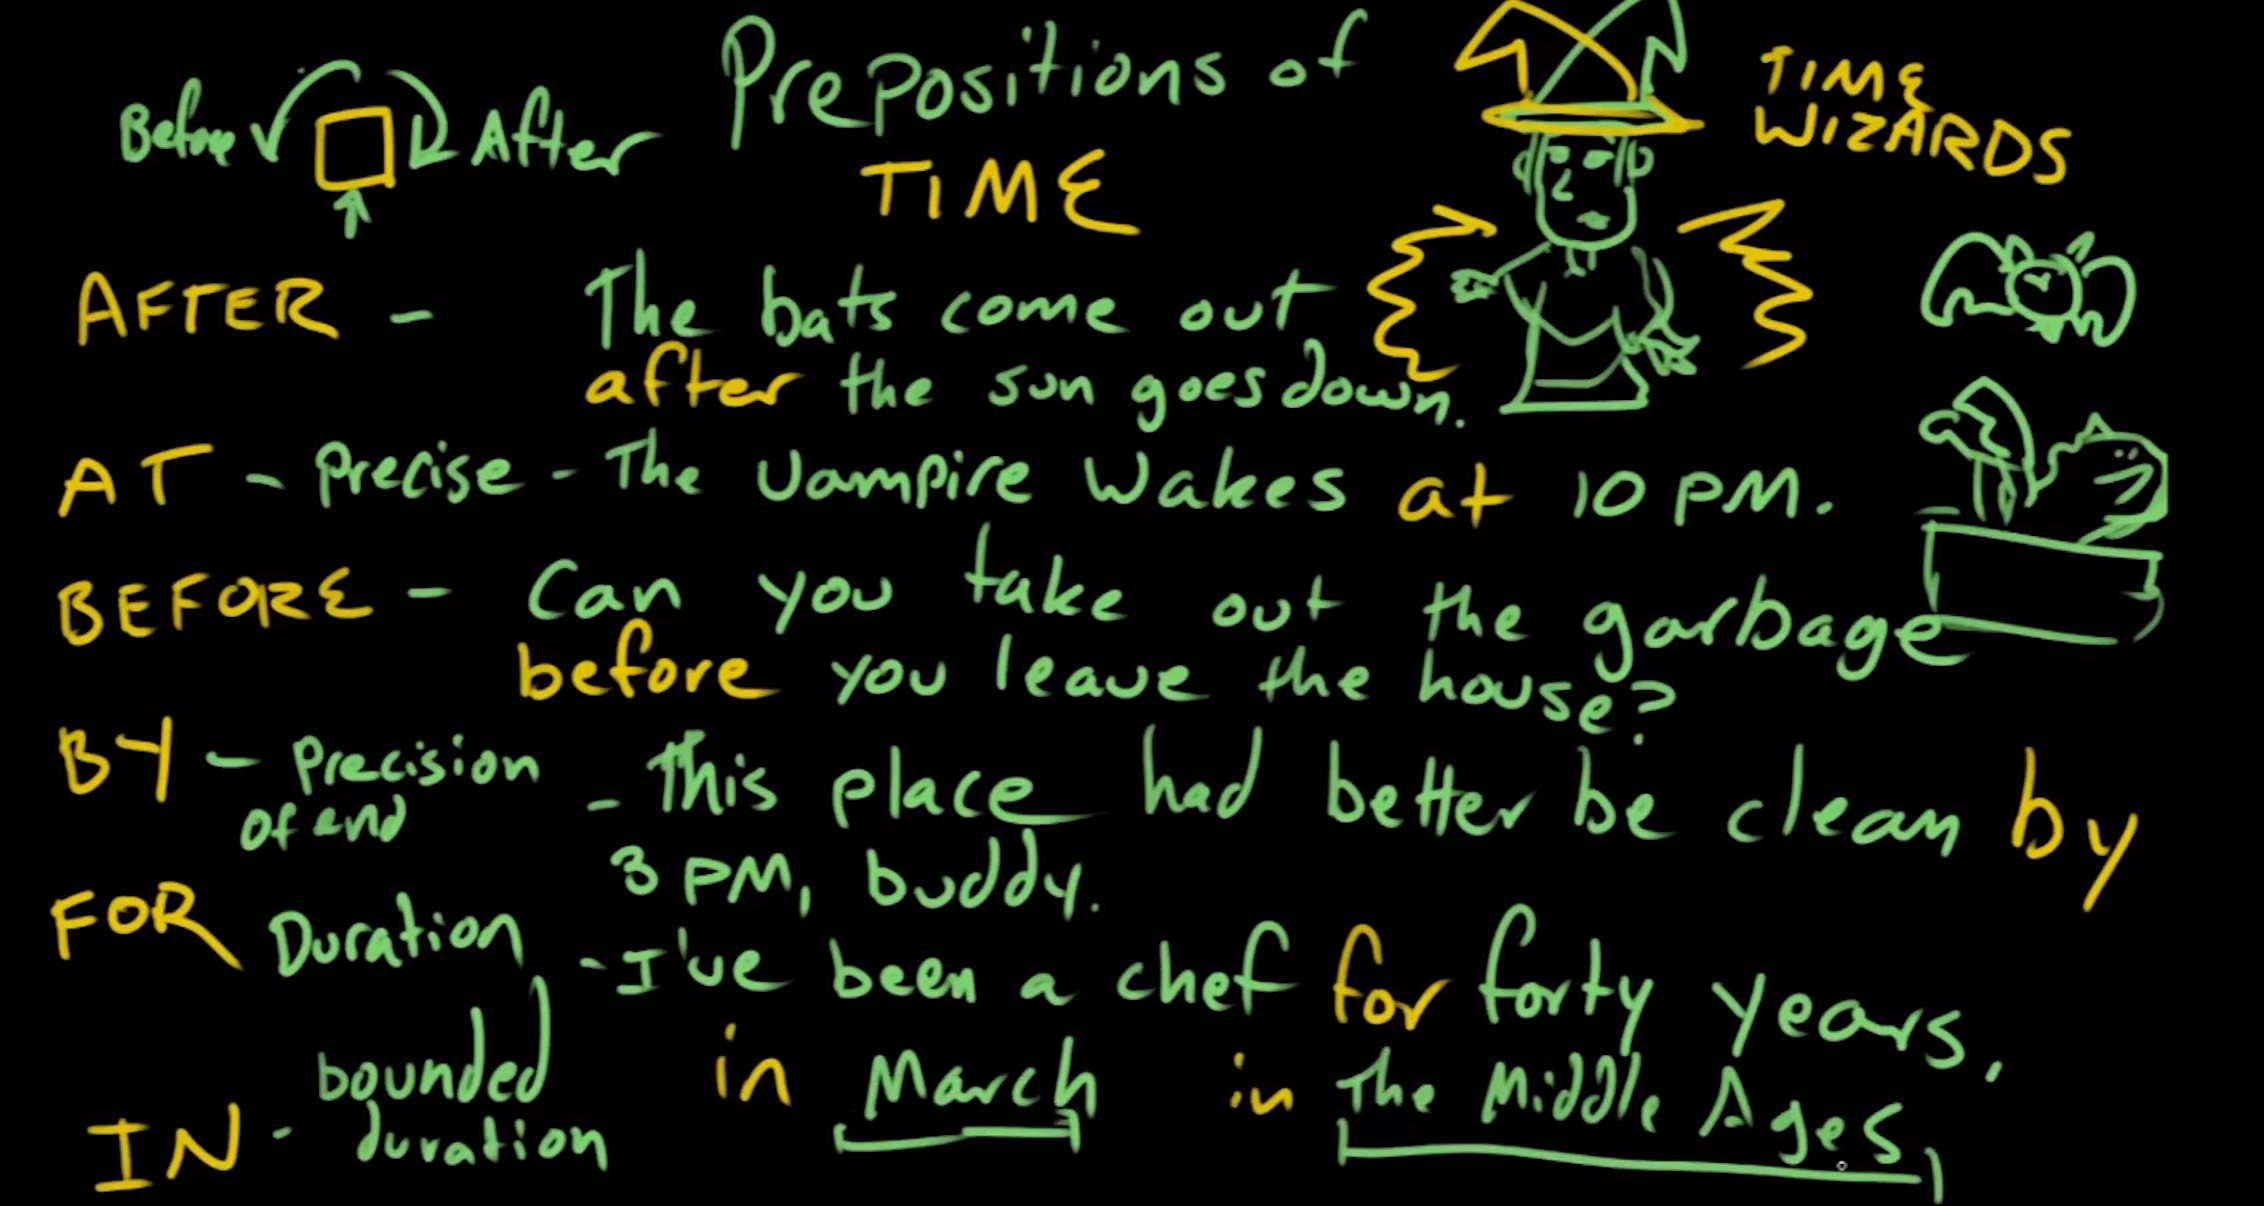 Before After
Prepositions of
TIME
TIME
WIZARDS
AFTER - The bats come out
after the sun goes down.
AT - Precise - The Vampire Wakes at 10 PM.
BEFORE - Can you take out the garbage
before you leave the house?
BY - Precision
of end
- This place had better be clean by
3 PM, buddy.
FOR Duration - I've been a chef for forty years.
IN - bounded
duration
in March in The Middle Ages